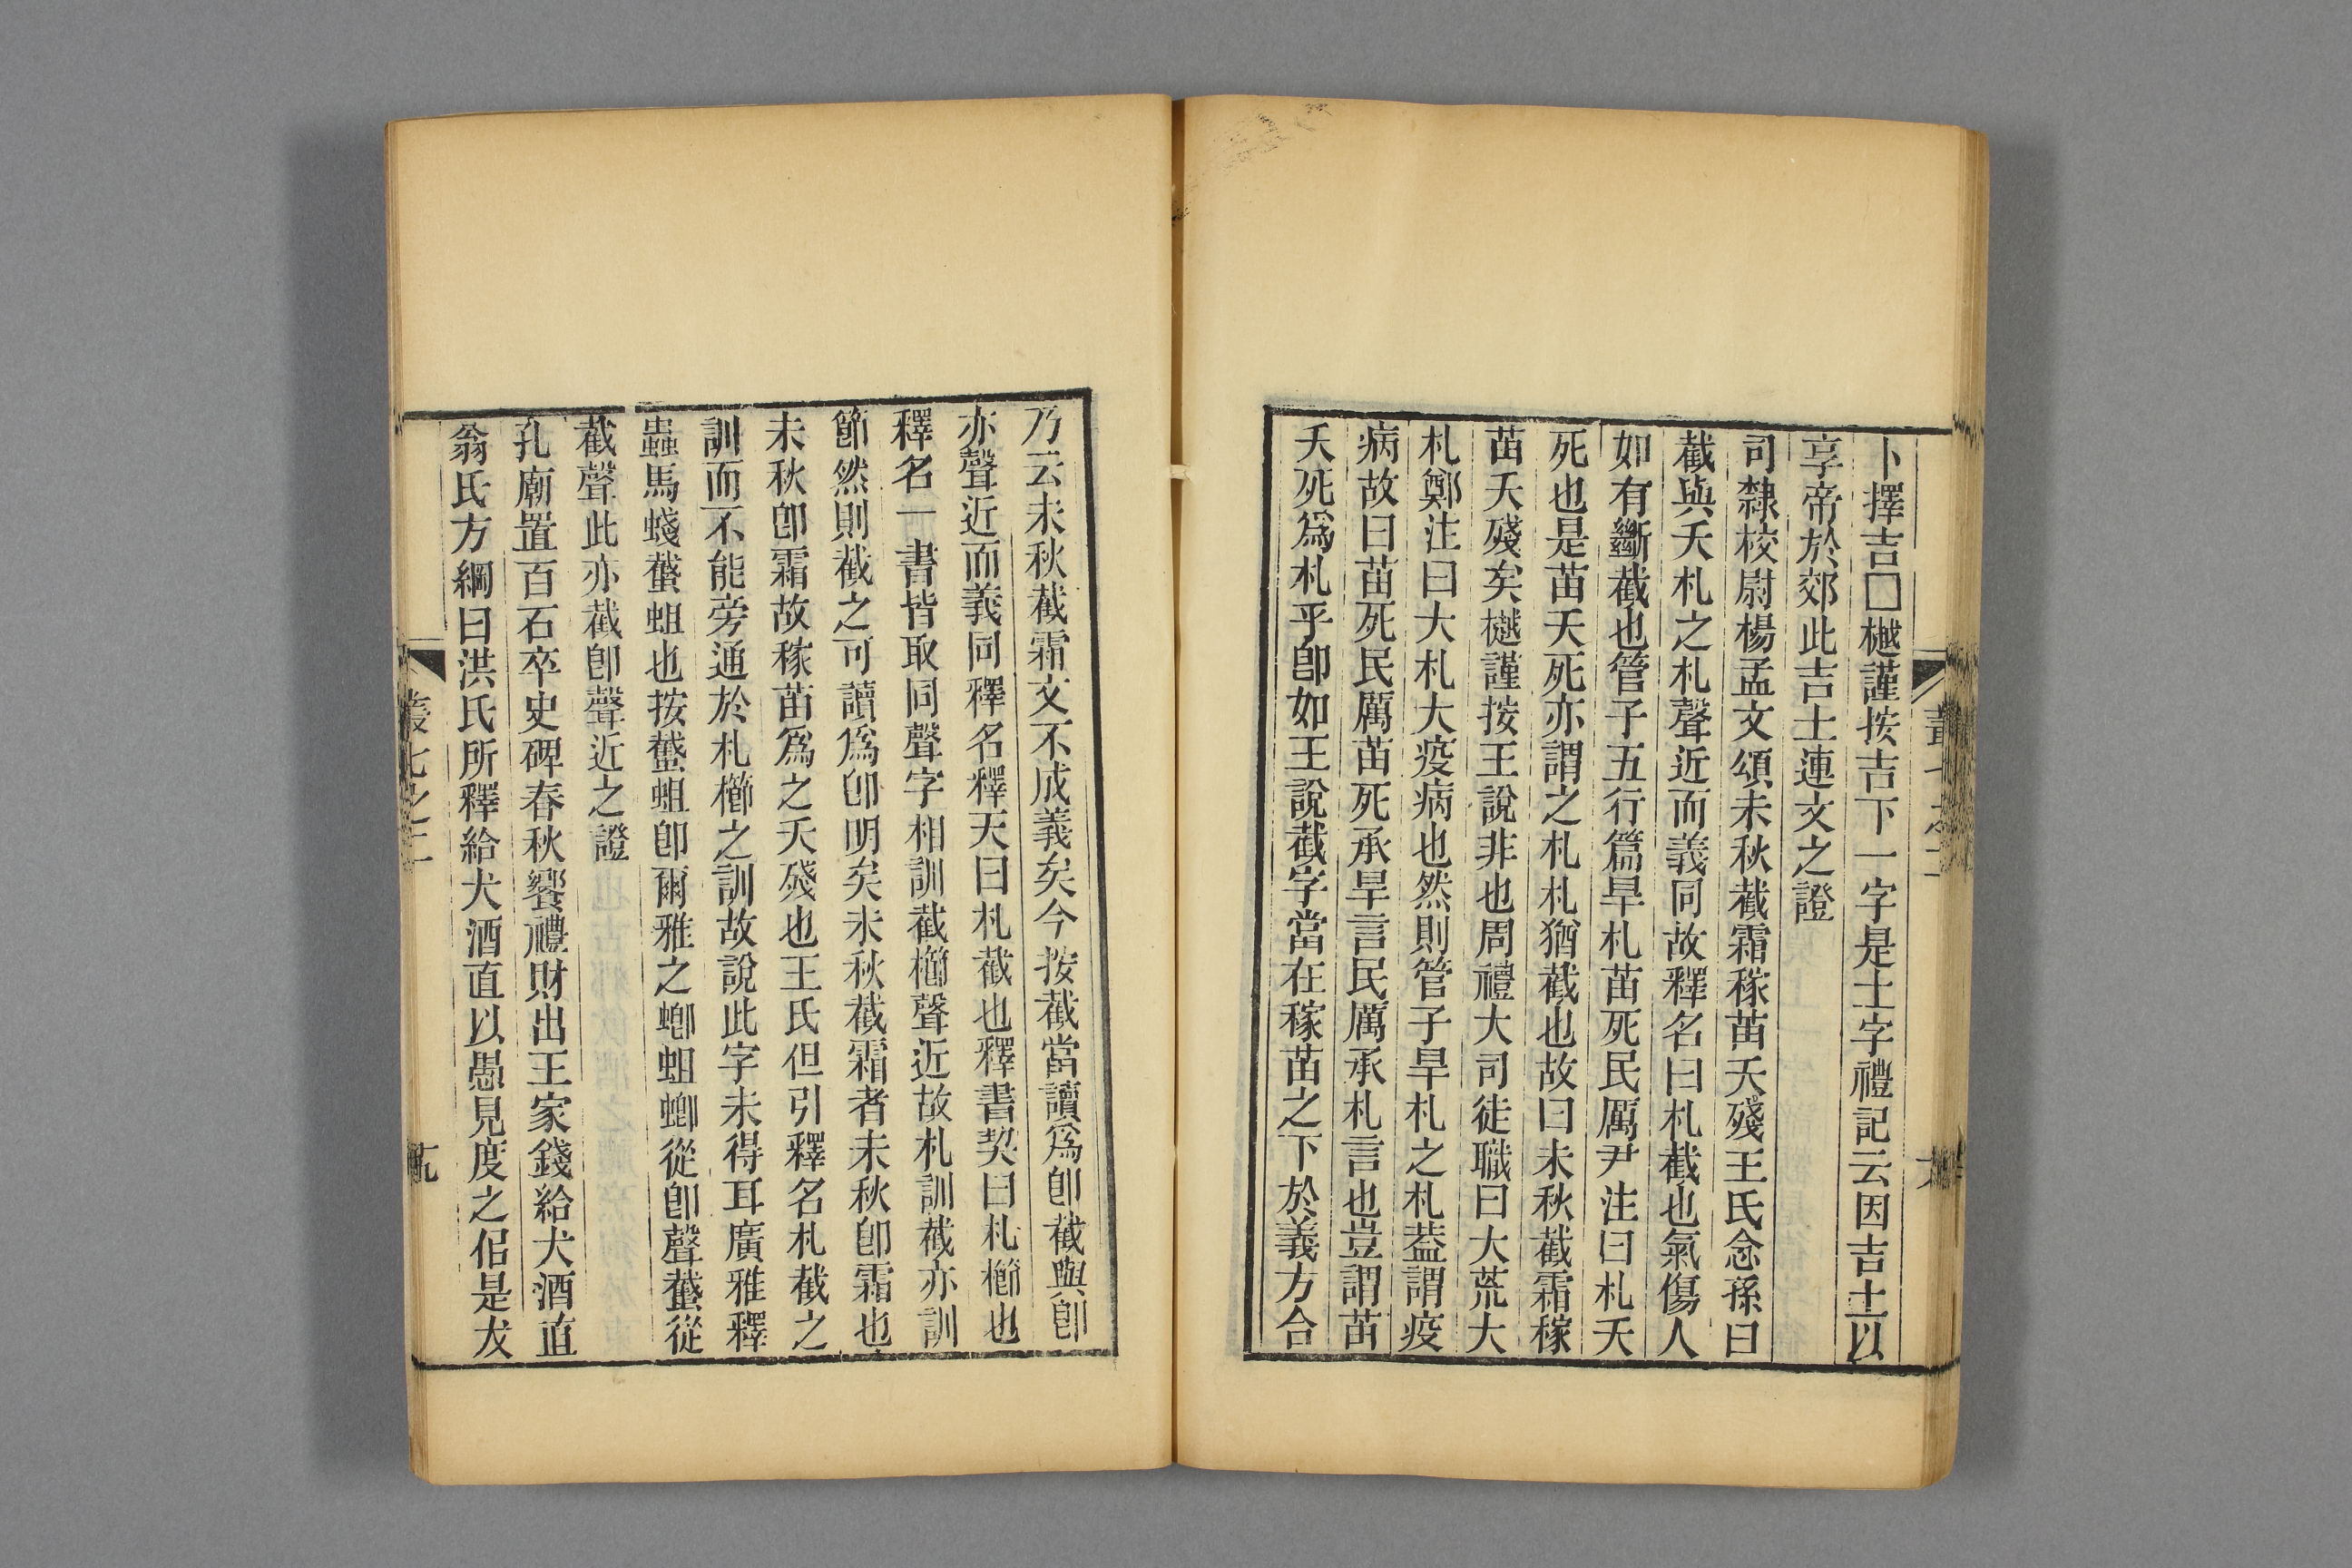 卜擇吉□樾謹按吉下一字是土字禮記云因吉土以
享帝於郊此吉土連文之證
司隸校尉楊孟文頌未秋截霜稼苗夭殘王氏念孫曰
截與夭札之札聲近而義同故釋名曰札截也氣傷人
如有斷截也管子五行篇旱札苗死民厲尹注曰札夭
死也是苗夭死亦謂之札札猶截也故曰未秋截霜稼
苗夭殘矣樾謹按王說非也周禮大司徒職曰大荒大
札鄭注曰大札大疫病也然則管子旱札之札葢謂疫
病故曰苗死民厲苗死承旱言民厲承札言也豈謂苗
夭死爲札乎卽如王說截字當在稼苗之下於義方合
乃云未秋截霜文不成義矣今按截當讀爲卽截與卽
亦聲近而義同釋名釋天曰札截也釋書契曰札櫛也
釋名一書皆取同聲字相訓截櫛聲近故札訓截亦訓
節然則截之可讀爲卽明矣未秋截霜者未秋卽霜也
未秋卽霜故稼苗爲之夭殘也王氏但引釋名札截之
訓而不能旁通於札櫛之訓故說此字未得耳廣雅釋
蟲馬蠽蠽蛆也按蠽蛆卽爾雅之蝍蛆蝍從卽聲蠽從
截聲此亦截卽聲近之證
孔廟置百石卒史碑春秋饗禮財出王家錢給犬酒直
翁氏方綱曰洪氏所釋給犬酒直以愚見度之佀是犮
叢七之二